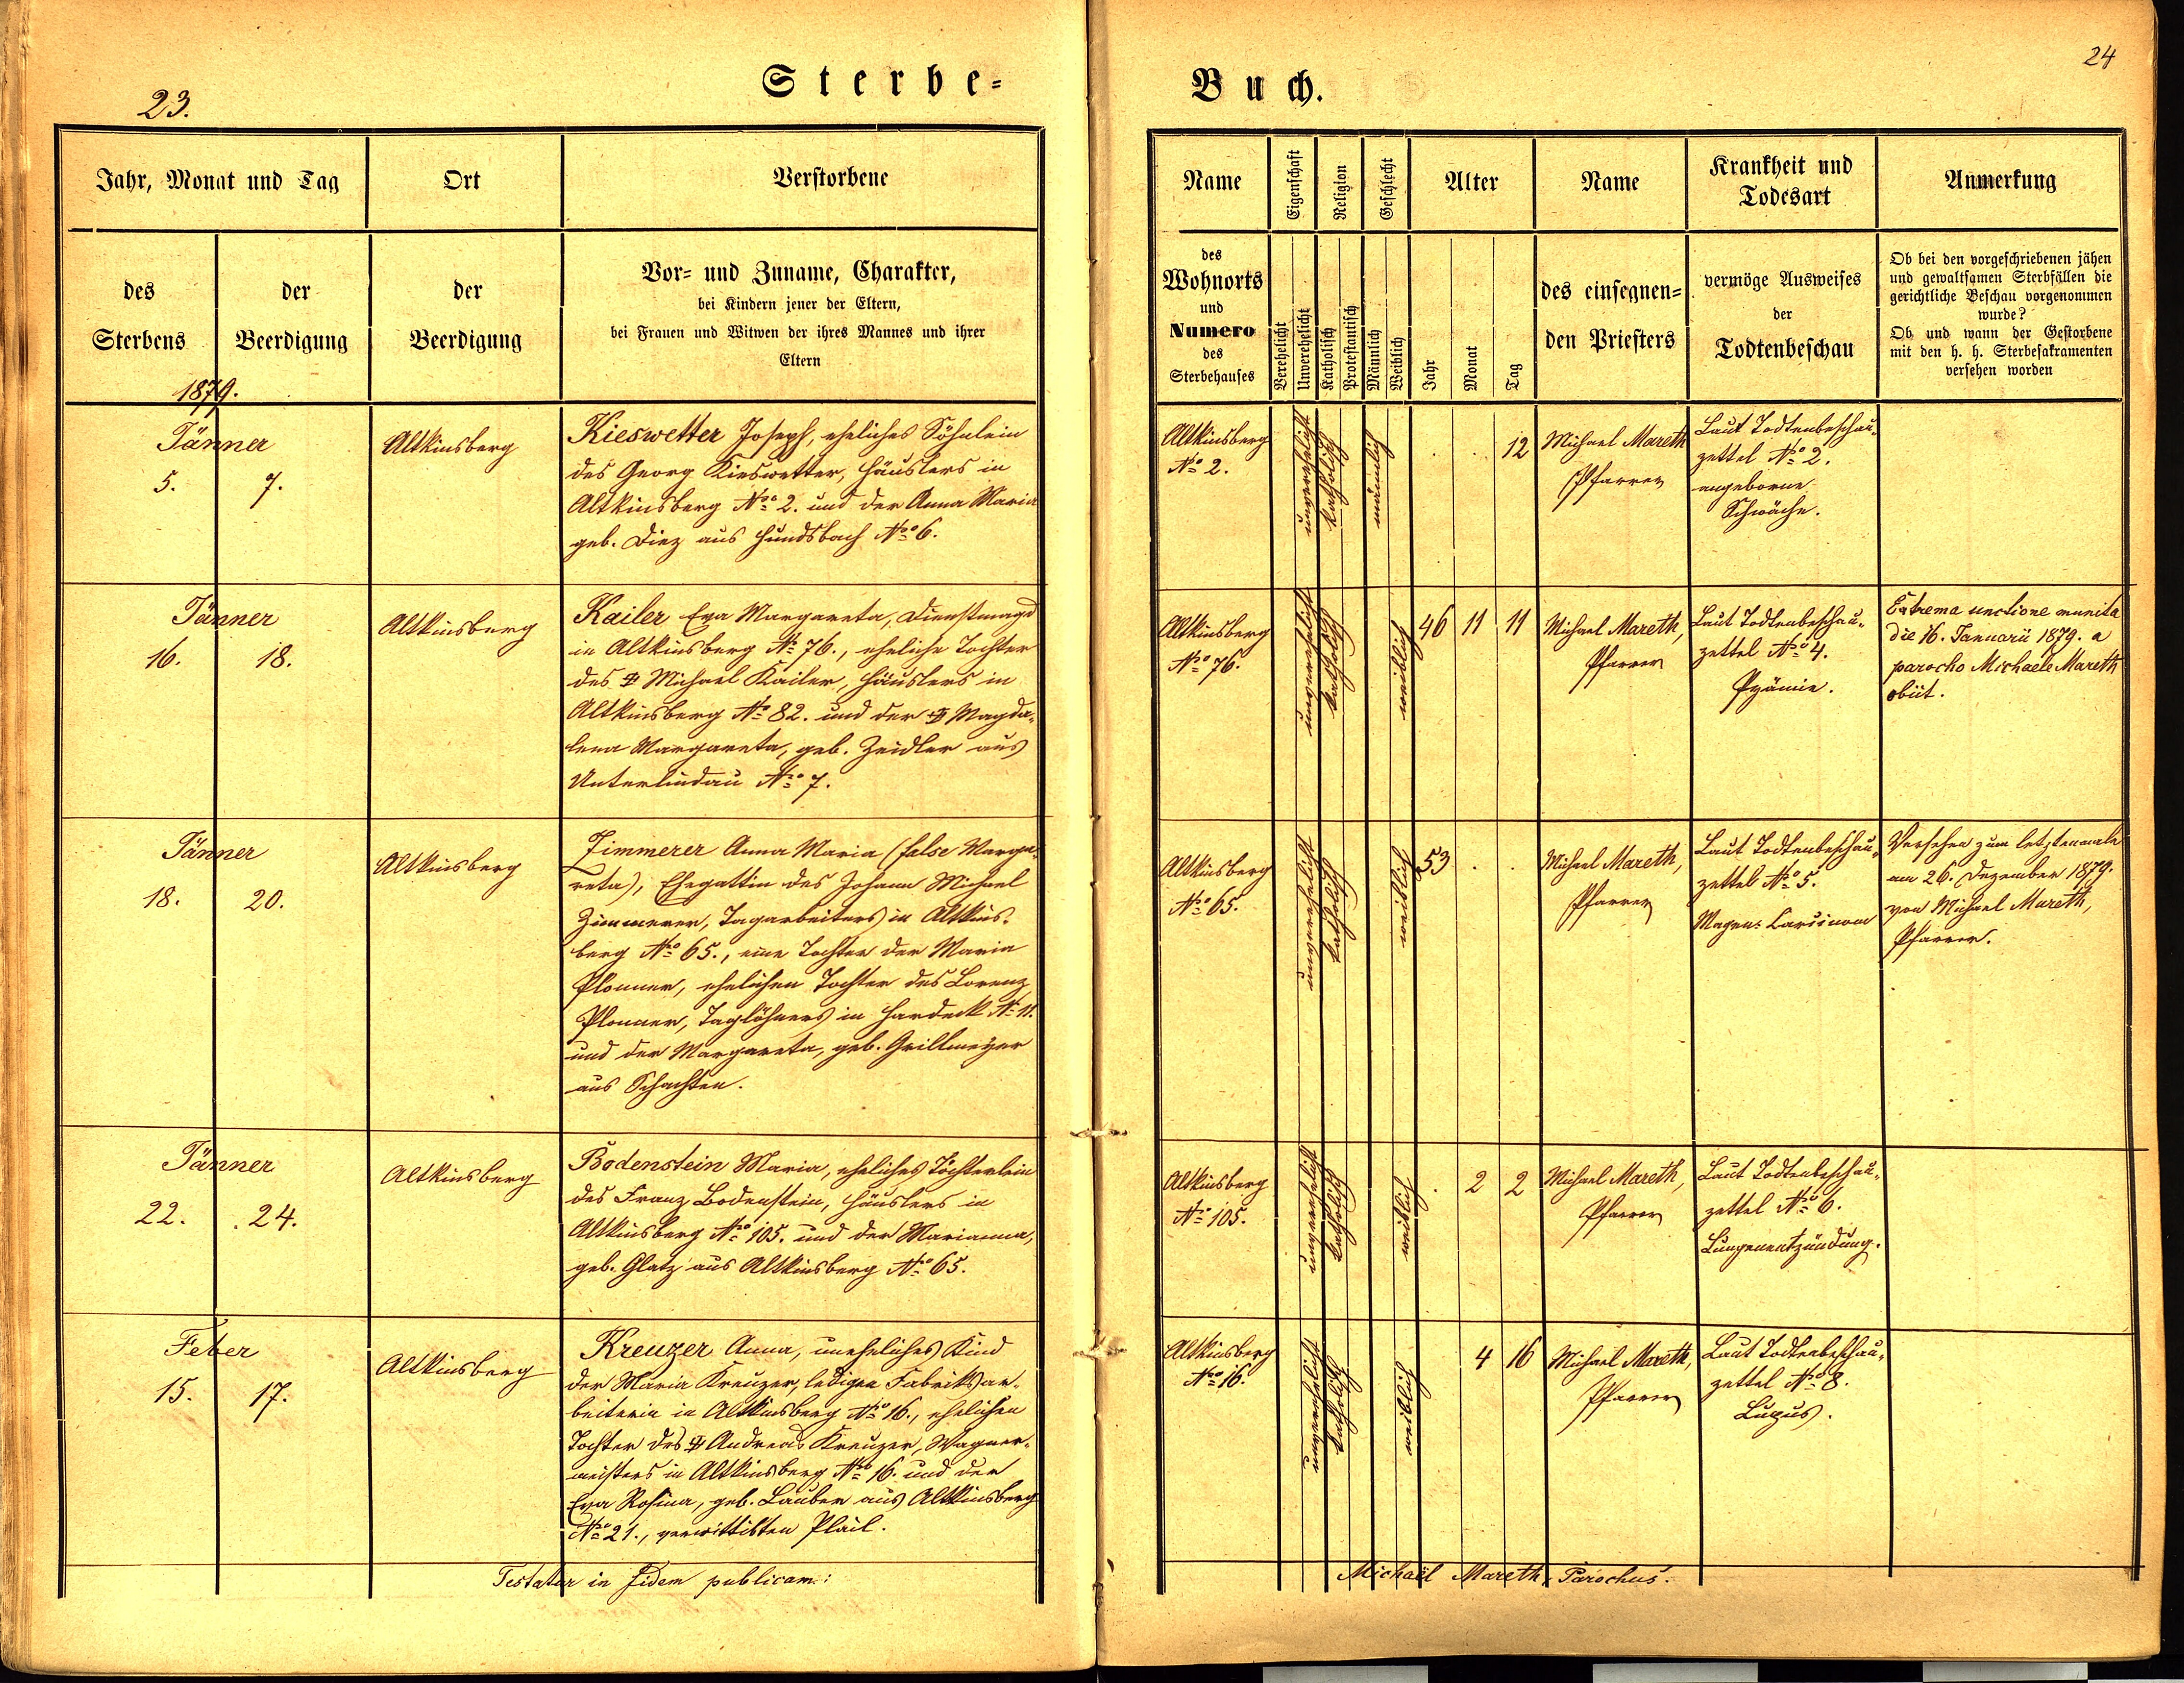 23.
Sterbe-
Jahr, Monat und Tag
Ort
Verstorbene
des
Sterbens
der
Beerdigung
der
Beerdigung
Vor- und Zuname, Charakter,
bei Kindern jener der Eltern,
bei Frauen und Witwen der ihres Mannes und ihrer
Eltern
1879.
Jänner
5. 7.
Altkinsberg
Kieswetter Joseph, eheliches Söhnlein
des Georg Kieswetter, Häuslers in
Altkinsberg No 2. und der Anna Maria
geb. Diez aus Hundsbach No 6.
Jänner
16. 18.
Altkinsberg
Kailer Eva Margareta, Dienstmagd
in Altkinsberg No 76., eheliche Tochter
des ‡ Michael Kailer, Häuslers in
Altkinsberg No 82. und der ‡ Magda-
lena Margareta, geb. Zeidler aus
Unterlindau No 7.
Jänner
18. 20.
Altkinsberg
Zimmerer Anna Maria (false Marga-
reta), Ehegattin des Johann Michael
Zimmerer, Tagarbeiters in Altkins-
berg No 65., eine Tochter der Maria
Plonner, ehelichen Tochter des Lorenz
Plonner, Taglöhners in Hardeck No 11.
und der Margareta, geb. Grillmeyer
aus Schachten.
Jänner
22. 24.
Altkinsberg
Bodenstein Maria, eheliches Töchterlein
des Franz Bodenstein, Häuslers in
Altkinsberg No 105. und der Marianna,
geb. Glatz aus Altkinsberg No 65.
Feber
15. 17.
Altkinsberg
Kreuzer Anna, uneheliches Kind
der Maria Kreuzer, ledigen Fabriksar-
beiterin in Altkinsberg No 16., ehelichen
Tochter des ‡ Andreas Kreuzer, Wagner-
meisters in Altkinsberg No 16. und der
Eva Rosina, geb. Lauber aus Altkinsberg
No 21., verwittibten Plail.
Testatur in fidem publicam:
24
Buch.
Name
Eigenschaft
Religion
Geschlecht
Alter
Name
Krankheit und
Todesart
Anmerkung
des
Wohnorts
und
Numero
des
Sterbehauses
Verehelicht
Unverehelicht
Katholisch
Protestantisch
Männlich
Weiblich
Jahr
Monat
Tag
des einsegnen-
den Priesters
vermöge Ausweises
der
Todtenbeschau
Ob bei den vorgeschriebenen jähen
und gewaltsamen Sterbfällen die
gerichtliche Beschau vorgenommen
wurde?
Ob und wann der Gestorbene
mit den h. h. Sterbesakramenten
versehen worden
Altkinsberg
No 2.
unverehelicht
katholisch
männlich
. . 12
Michael Mareth
Pfarrer
Laut Todtenbeschau-
zettel No 2.
angeborne
Schwäche.
Altkinsberg
No 76.
unverehelicht
katholisch
weiblich
46 11 11
Michael Mareth,
Pfarrer
Laut Todtenbeschau-
zettel No 4.
Pyämie.
Extrema unctione munita
die 16. Januarii 1879. a
parocho Michaele Mareth
obiit.
Altkinsberg
No 65.
unverehelicht
katholisch
weiblich
53 . .
Michael Mareth,
Pfarrer
Laut Todtenbeschau-
zettel No 5.
Magen-Carcinom
Versehen zum letztenmale
am 26. Dezember 1879.
von Michael Mareth,
Pfarrer.
Altkinsberg
No 105.
unverehelicht
katholisch
weiblich
. 2 2
Michael Mareth,
Pfarrer
Laut Todtenbeschau-
zettel No 6.
Lungenentzündung.
Altkinsberg
No 16.
unverehelicht
katholisch
weiblich
4 16
Michael Mareth,
Pfarrer
Laut Todtenbeschau-
zettel No 8.
Lupus.
Michaël Mareth, Parochus.